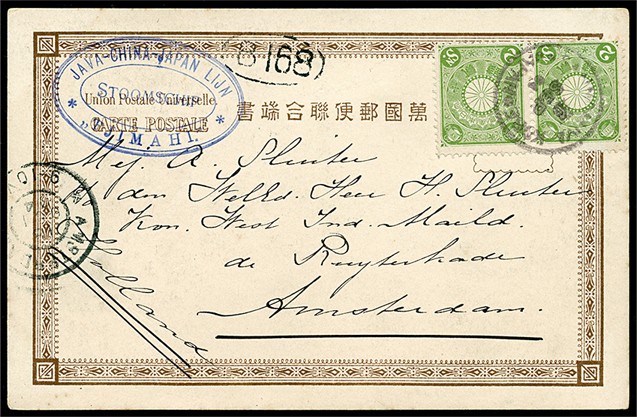 JAVA-CHINA-JAPAN LIJN
STOOMSCHIP
"TJIMAHI"
168
2 Sn
2 Sn
Union Postale Universelle
CARTE POSTALE
書端合聯便郵國萬
Mej. A. Pluiter
den Weled. Heer H. Pluiter
Kon. West Ind. Maild.
de Ruyterkade
Amsterdam.
Holland